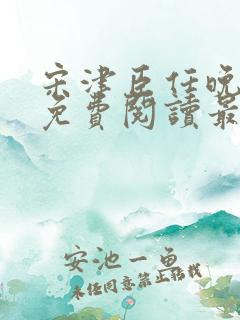 宋津臣任晚
免費閱讀最
安池一魚
未經同意禁止轉載